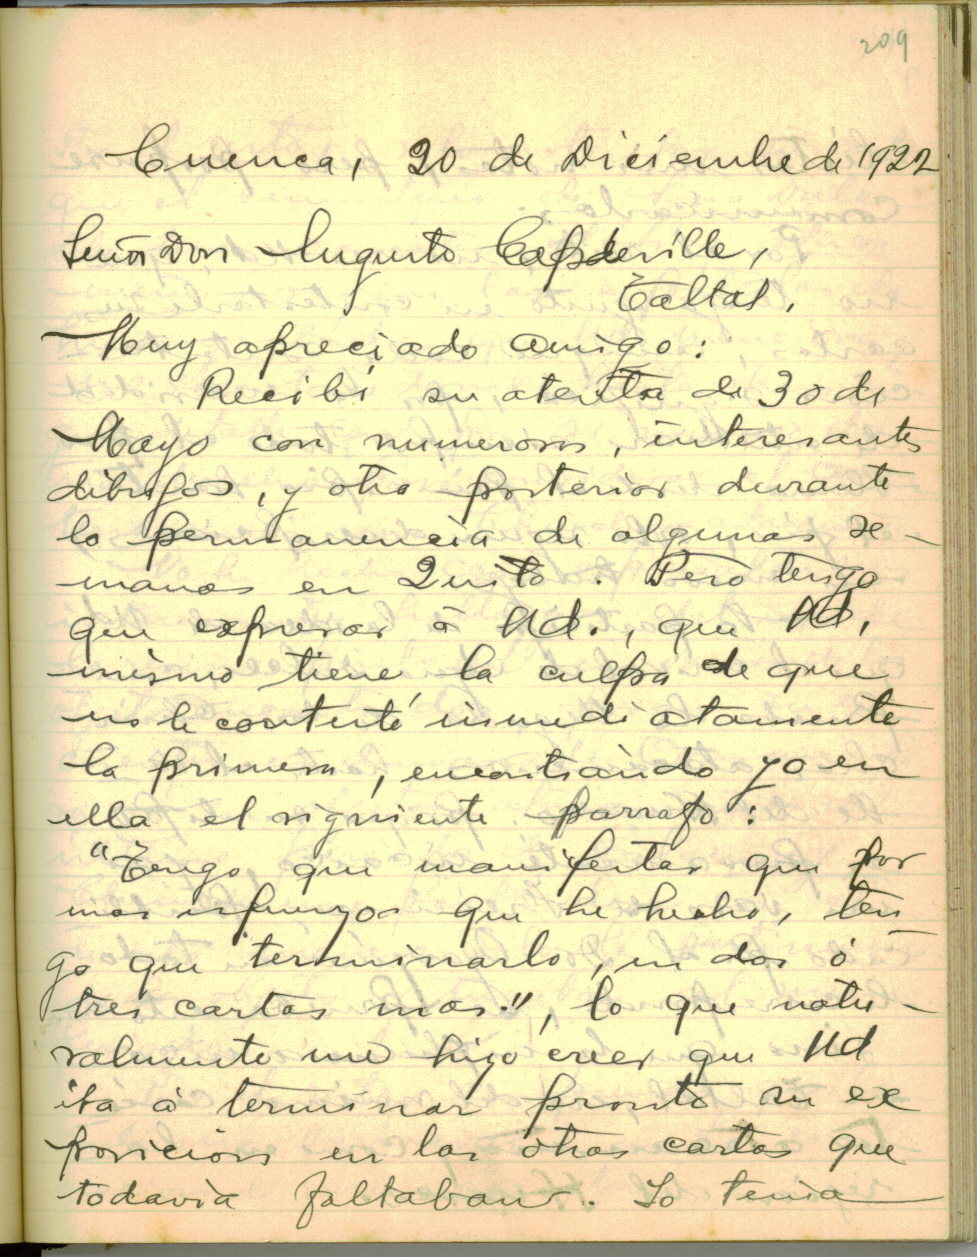 209
Cuenca, 20 de Diciembre de 1922
Señor Don Augusto Capdeville,
Taltal.
Muy apreciado amigo:
Recibí su atenta de 30 de
Mayo con numerosos, interesantes
dibujos, y otra posterior durante
la permanencia de algunas se-
manas en Quito. Pero tengo
que expresar á Ud., que Ud,
mismo tiene la culpa de que
no le contesté inmediatamente
la primera, encontrando yo en
ella el siguiente parrafo:
"Tengo, que manifestar que por
mas esfuerzos que he hecho, ten-
go que terminarlo, en dos ó
tres cartas mas.", lo que natu-
ralmente me hizo creer que Ud
iba á terminar pronto su ex
posicion en las otras cartas que
todavia faltaban. Yo tenia